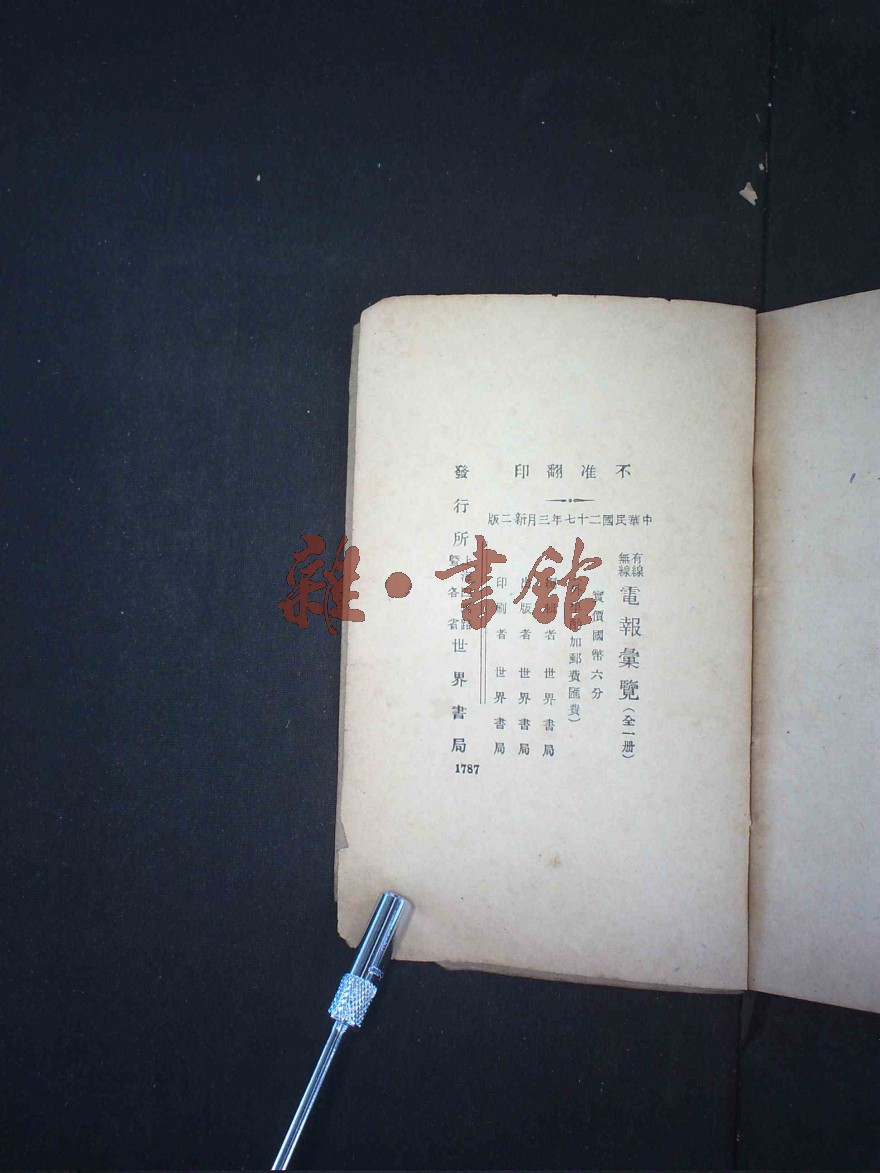 不准翻印
中華民國二十七年三月新二版
有線
無線
電報彙覽(全一册)
實價國幣六分
加郵費匯費)
者世界書局
版者世界書局
印刷者世界書局
發行所
上海
暨各省
世界書局
1787
雜·書館